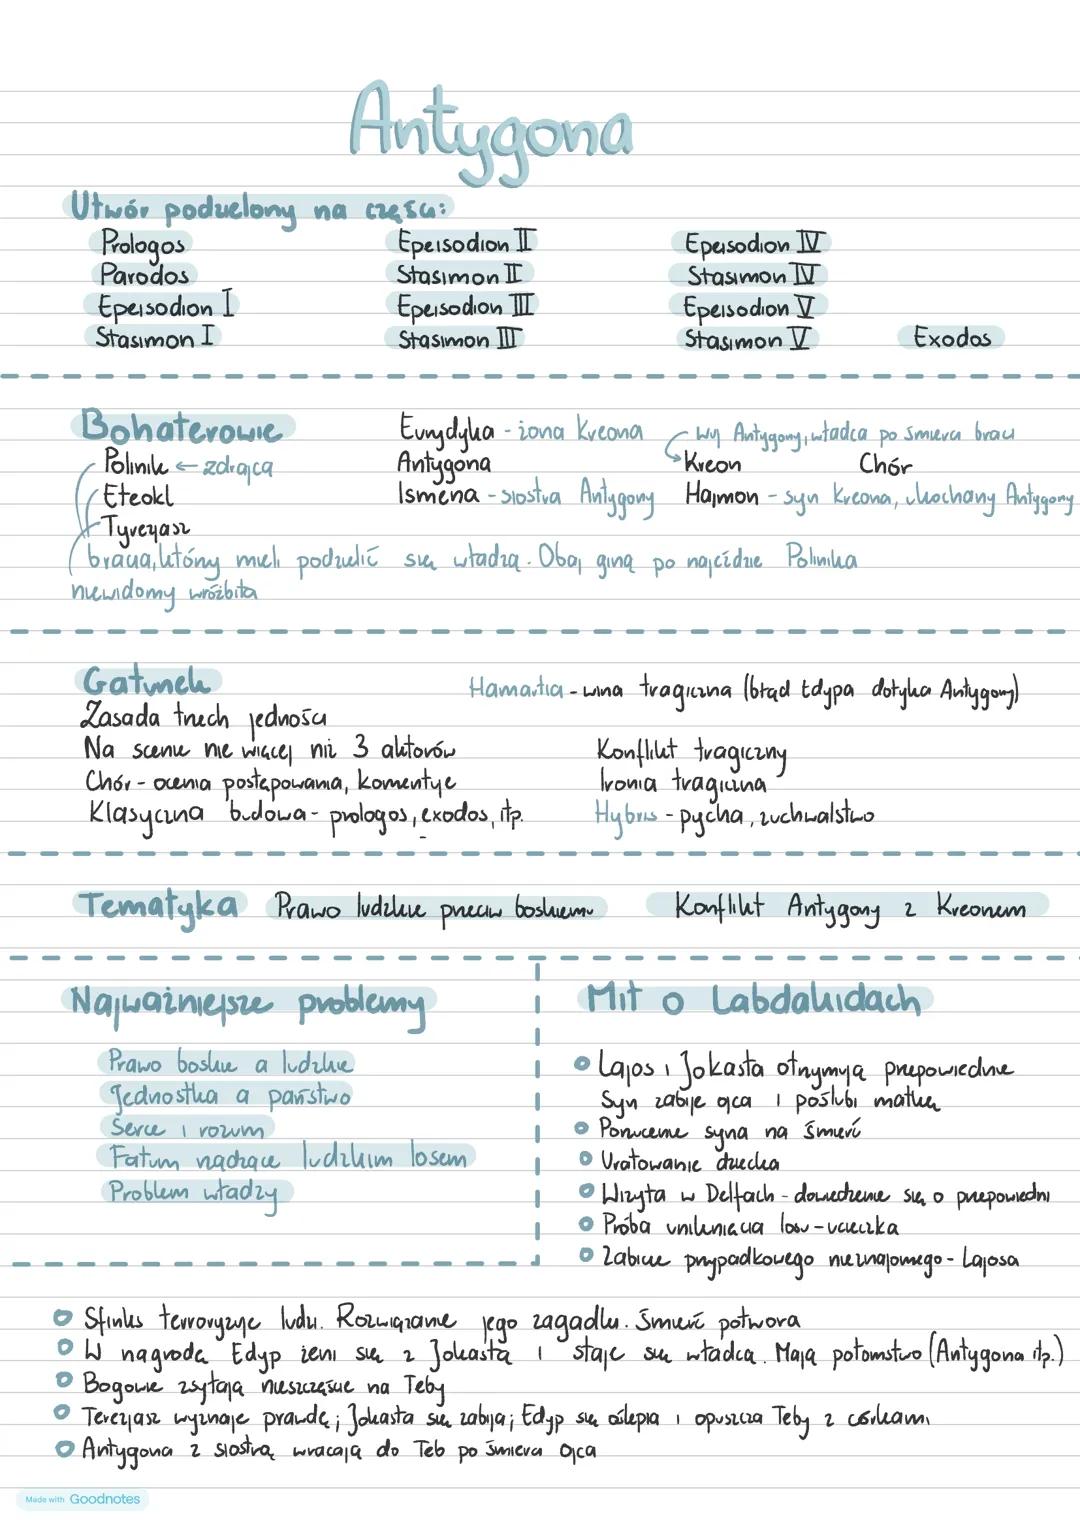 Antygona
Utwór podzielony na części:
Prologos
Parodos
Epeisodion I
Stasimon I
Epeisodion II
Stasimon II
Epeisodion III
Stasimon III
Epeisodion IV
Stasimon IV
Epeisodion V
Stasimon V
Exodos
Bohaterowie
Polinik ← zdrajca
Eteokl
Tyrezjasz
bracia, którzy mieli podzielić się władzą. Obaj giną po najeździe Polinika
niewidomy wróżbita
Eurydyka - żona Kreona
Antygona
Ismena - siostra Antygony
wuj Antygony, władca po śmierci braci
Kreon
Chór
Hajmon - syn Kreona, ukochany Antygony
Gatunek
Zasada trzech jedności
Na scenie nie więcej niż 3 aktorów
Chór - ocenia postępowania, komentuje
Klasyczna budowa - prologos, exodos, itp.
Hamartia - wina tragiczna (błąd Edypa dotyka Antygony)
Konflikt tragiczny
Ironia tragiczna
Hybris - pycha, zuchwalstwo
Tematyka Prawo ludzkie przeciw boskiemu Konflikt Antygony z Kreonem
Najważniejsze problemy
Prawo boskie a ludzkie
Jednostka a państwo
Serce i rozum
Fatum rządzące ludzkim losem
Problem władzy
Mit o Labdakidach
Lajos i Jokasta otrzymują przepowiednie
Syn zabije ojca i poślubi matkę
Porzucenie syna na śmierć
Uratowanie dziecka
Wizyta w Delfach - dowiedzenie się o przepowiedni
Próba uniknięcia losu - ucieczka
Zabicie przypadkowego nieznajomego - Lajosa
Sfinks terroryzuje ludzi. Rozwiązanie jego zagadki. Śmierć potwora
W nagrodę Edyp żeni się z Jokastą i staje się władcą. Mają potomstwo (Antygona itp.)
Bogowie zsyłają nieszczęście na Teby
Terezjasz wyznaje prawdę; Jokasta się zabija; Edyp się oślepia i opuszcza Teby z córkami
Antygona z siostrą wracają do Teb po śmierci ojca
Made with Goodnotes